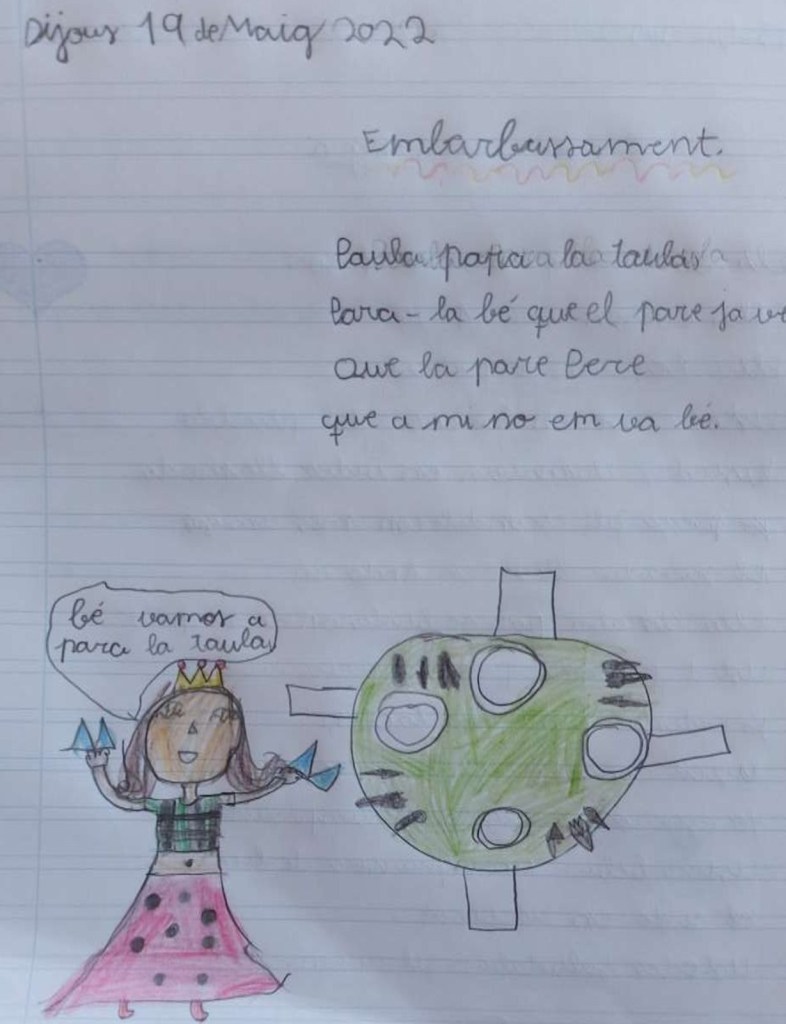 Dijous 19 de Maig 2022
Embarbussament.
Paula para la taula
Para-la bé que el pare ja ve
Que la pare Pere
que a mi no em va bé.
bé vamos a
para la taula